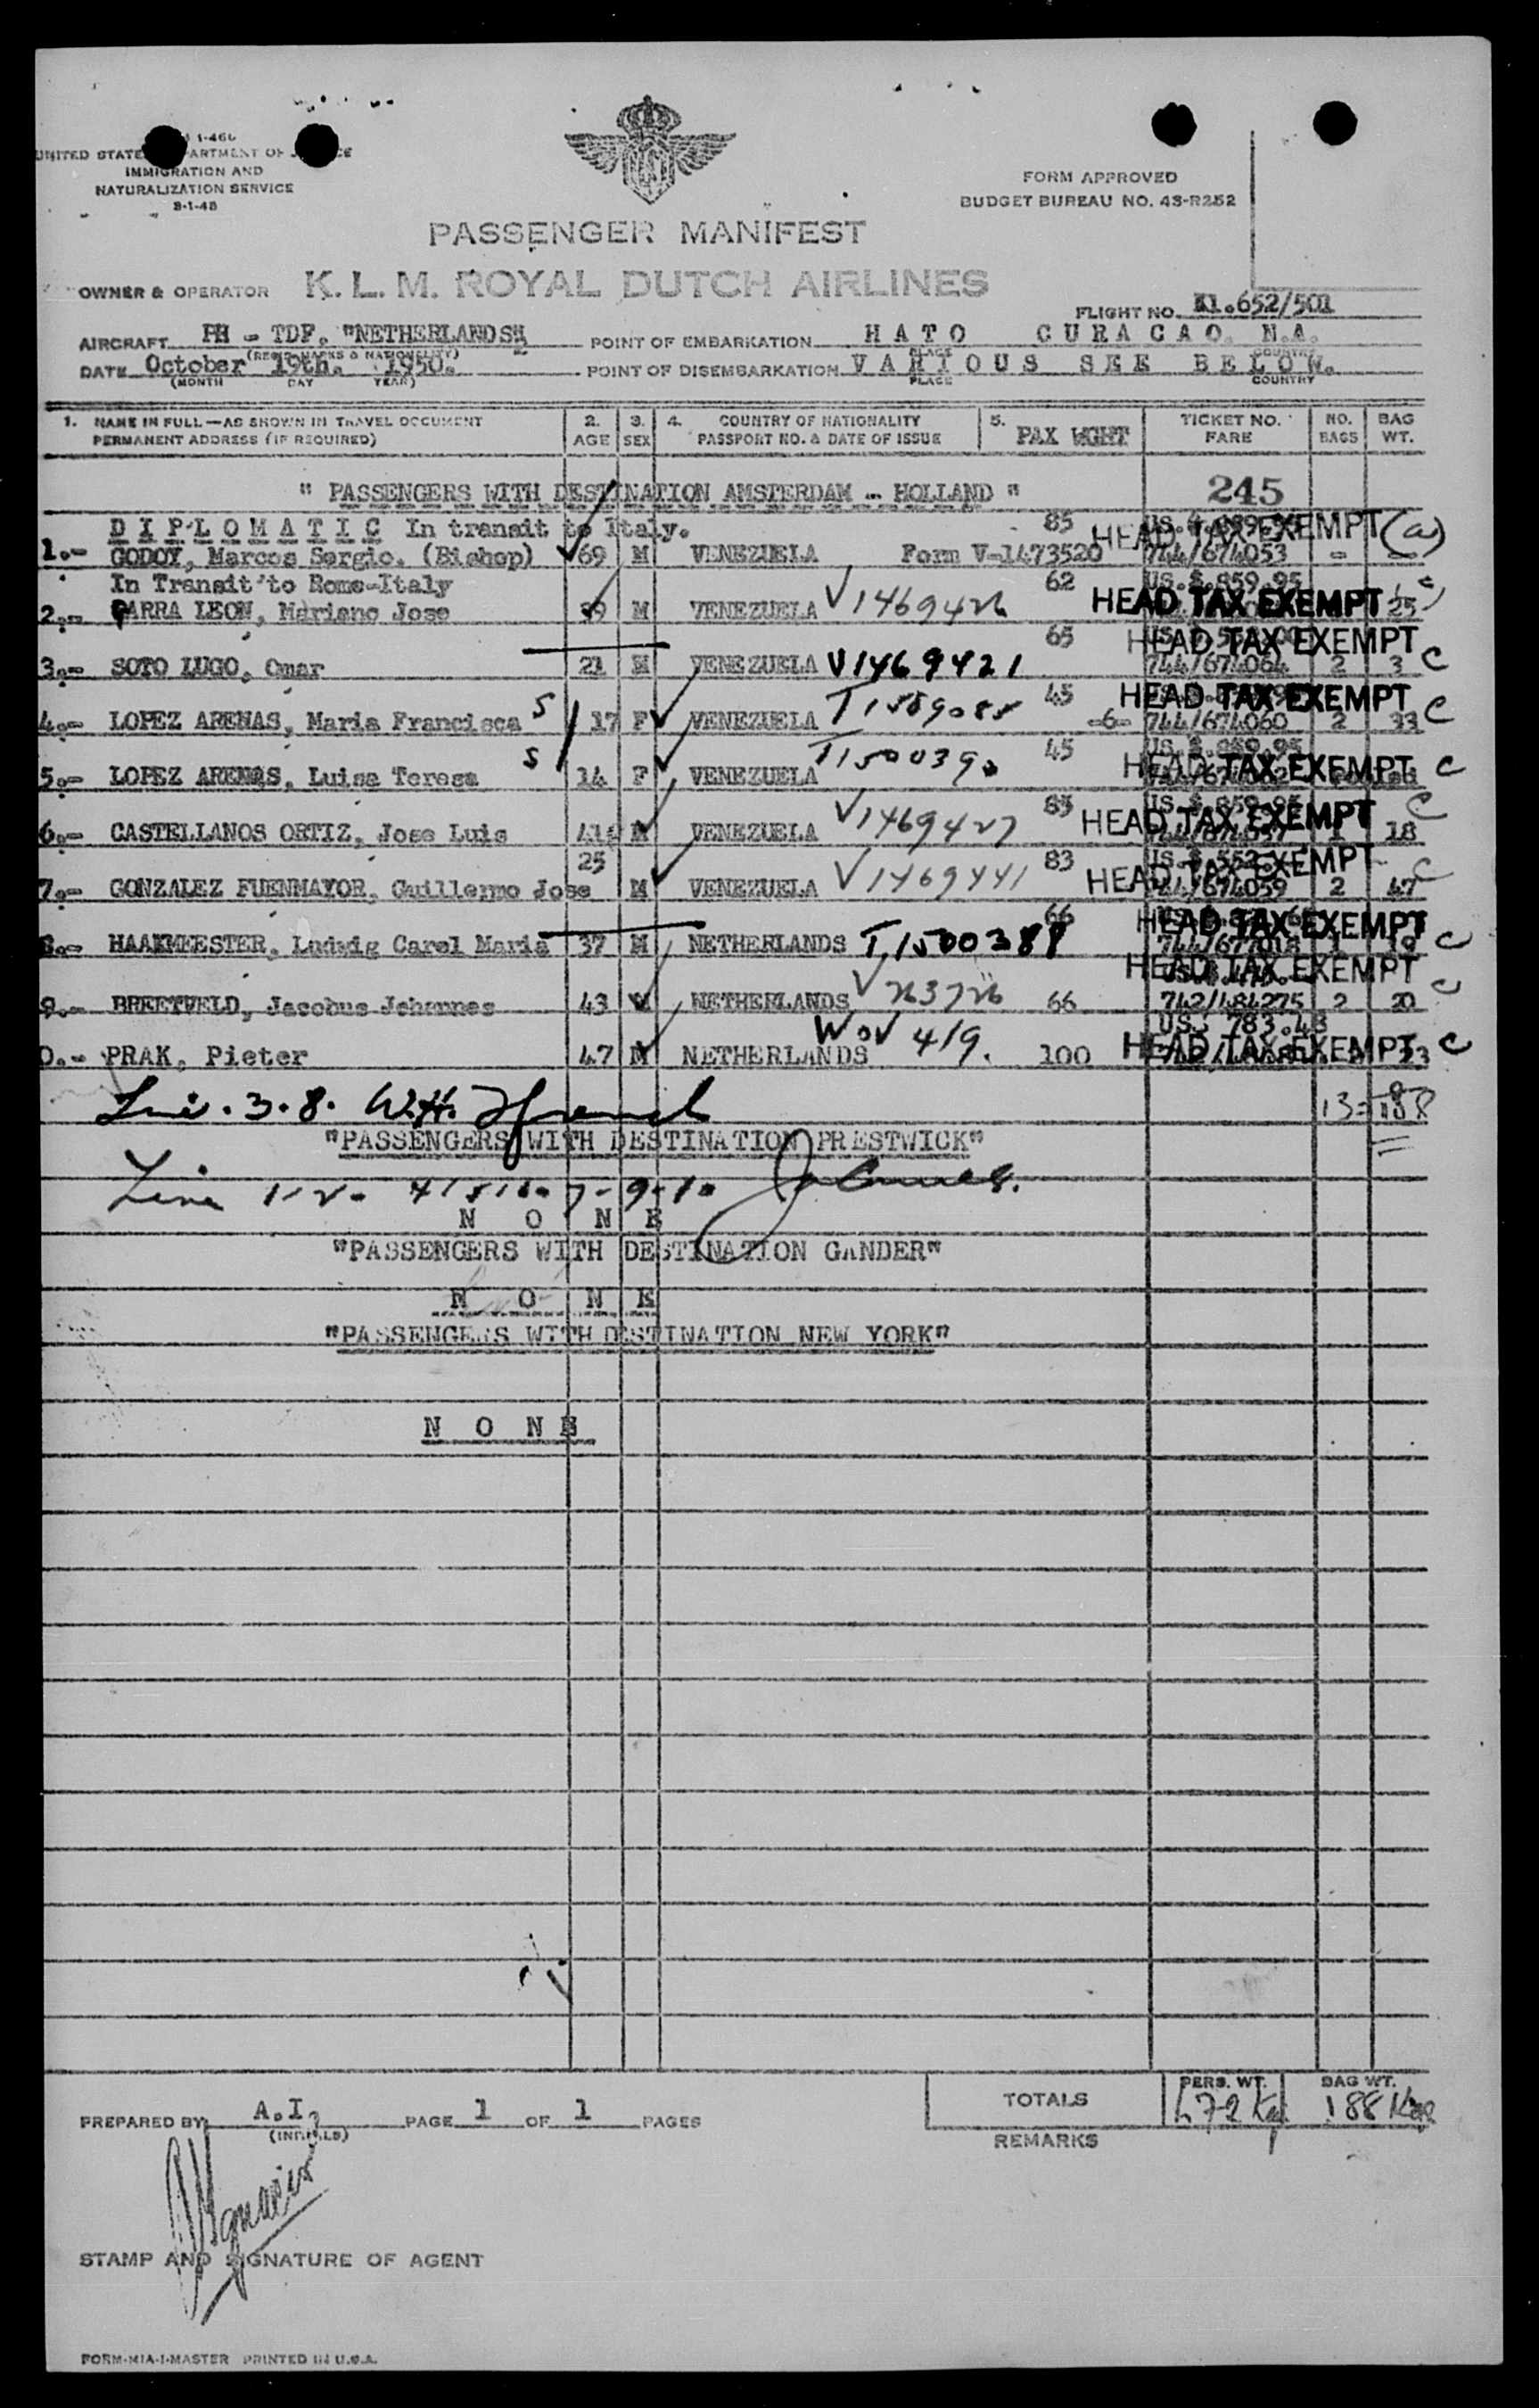 UNITED STATES DEPARTMENT OF JUSTICE
IMMIGRATION AND
NATURALIZATION SERVICE
FORM APPROVED
BUDGET BUREAU NO. 43-R252
PASSENGER MANIFEST
OWNER & OPERATOR K. L. M. ROYAL DUTCH AIRLINES
FLIGHT NO. Kl.652/501
AIRCRAFT PH - TDF. "NETHERLANDS" POINT OF EMBARKATION HATO CURACAO. N.A.
(REGIS. MARKS & NATIONALITY) PLACE COUNTRY
DATE October 19th. 1950. POINT OF DISEMBARKATION VARIOUS SEE BELOW.
(MONTH DAY YEAR) PLACE COUNTRY
1. NAME IN FULL—AS SHOWN IN TRAVEL DOCUMENT 2. 3. 4. COUNTRY OF NATIONALITY 5. PAX WGHT TICKET NO. NO. BAG
PERMANENT ADDRESS (IF REQUIRED) AGE SEX PASSPORT NO. & DATE OF ISSUE FARE BAGS WT.
" PASSENGERS WITH DESTINATION AMSTERDAM - HOLLAND " 245
DIPLOMATIC In transit to Italy. 85 HEAD TAX EXEMPT (a)
1.- GODOY, Marcos Sergio. (Bishop) 69 M VENEZUELA Form V-1473520 744/674053 - -
In Transit to Rome-Italy 62 US.$.859.95
2.- PARRA LEON, Mariano Jose 39 M VENEZUELA V1469426 HEAD TAX EXEMPT 25
65 HEAD TAX EXEMPT
3.- SOTO LUGO, Omar 21 M VENEZUELA V1469421 744/674064 2 3 C
45 HEAD TAX EXEMPT C
4.- LOPEZ ARENAS, Maria Francisca S 17 F VENEZUELA T1589085 -6- 744/674060 2 33
45 US.$.859.95
5.- LOPEZ ARENAS, Luisa Teresa S 14 F VENEZUELA T1500390 HEAD TAX EXEMPT C
83 US.$.859.95 C
6.- CASTELLANOS ORTIZ, Jose Luis 41 M VENEZUELA V1469427 HEAD TAX EXEMPT 18
25 83 HEAD TAX EXEMPT C
7.- GONZALEZ FUENMAYOR, Guillermo Jose M VENEZUELA V1469441 744/674059 2 47
66 HEAD TAX EXEMPT
8.- HAAKMEESTER, Ludwig Carel Maria 37 M NETHERLANDS T1500388 744/677018 1 19 C
HEAD TAX EXEMPT C
9.- BREETVELD, Jacobus Johannes 43 M NETHERLANDS V263726 66 742/484275 2 20
US. 783.48
0.- PRAK, Pieter 47 M NETHERLANDS WOV 419. 100 HEAD TAX EXEMPT 23 C
3.8. W.H. 13 188
"PASSENGERS WITH DESTINATION PRESTWICK"
Line 1-2- 4/5/6- 7-9-10
NONE
"PASSENGERS WITH DESTINATION GANDER"
NONE
"PASSENGERS WITH DESTINATION NEW YORK"
NONE
PREPARED BY A.I. PAGE 1 OF 1 PAGES
(INITIALS)
TOTALS PERS. WT. BAG WT.
672 Kg 188 Kgs
REMARKS
STAMP AND SIGNATURE OF AGENT
FORM-MIA-I-MASTER PRINTED IN U.S.A.